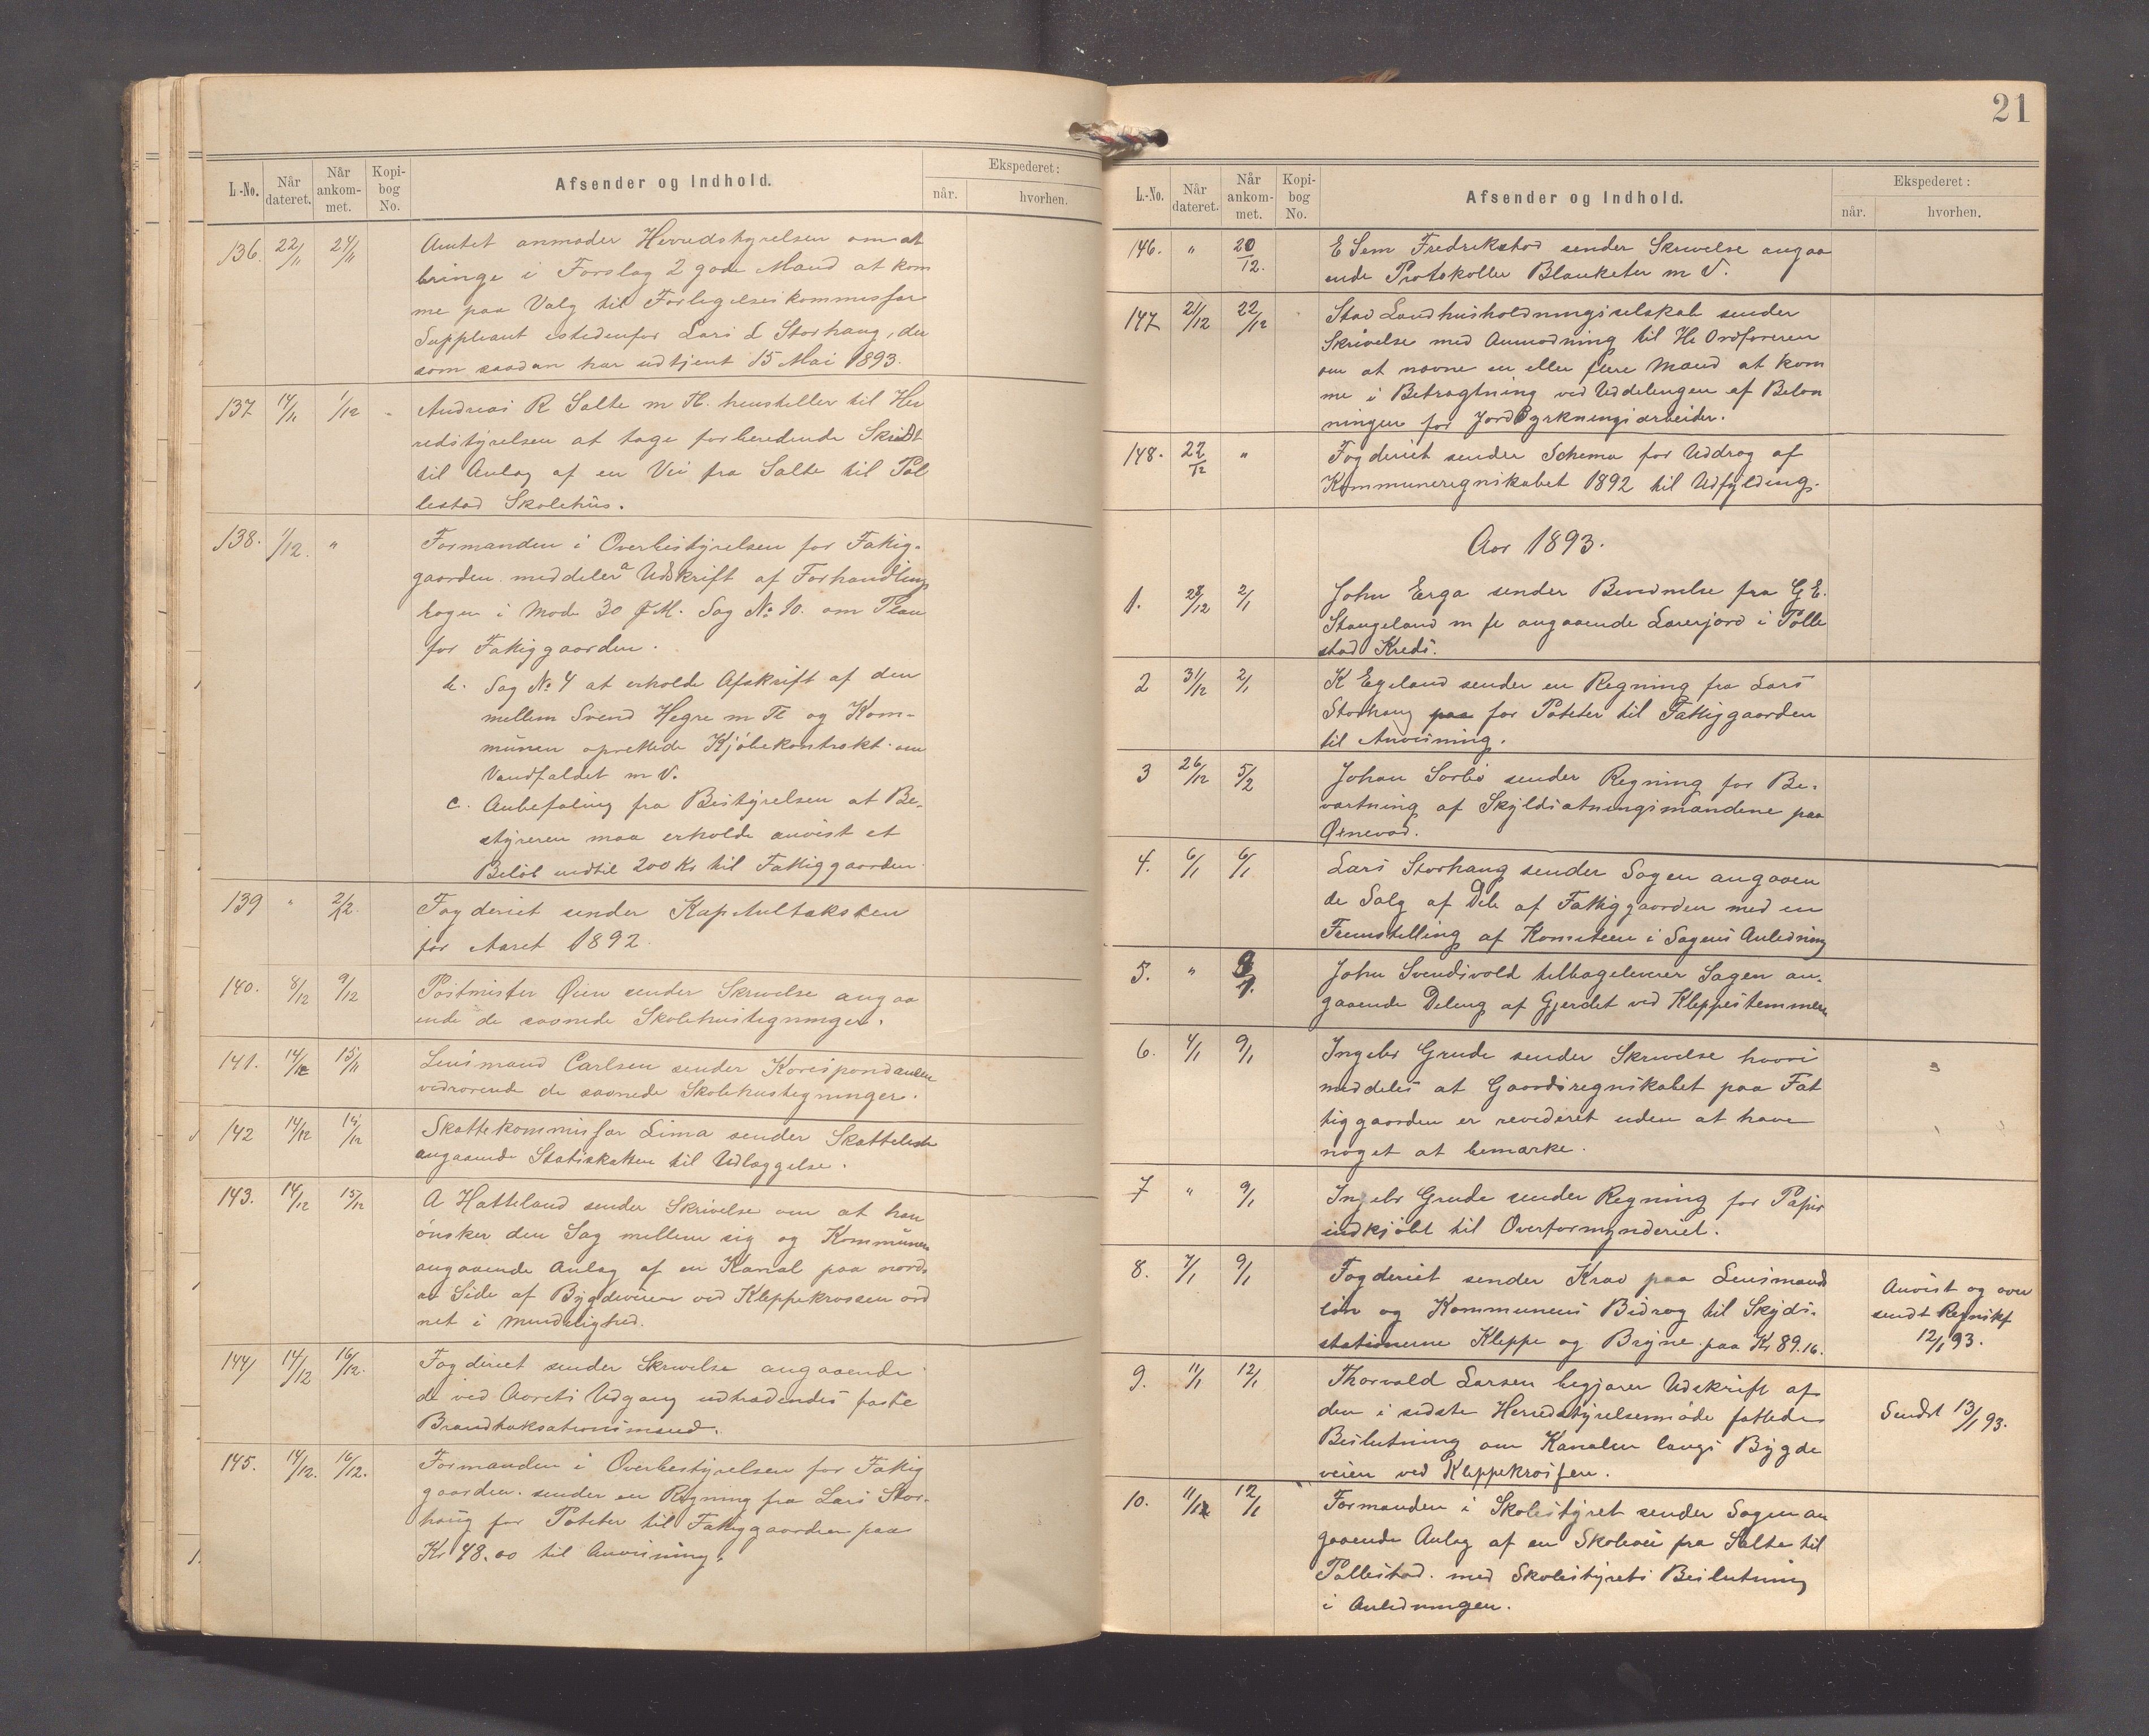 L.-No.
Når dateret.
Når ankommet.
Kopibog No.
Afsender og Indhold.
Ekspederet:
når.
hvorhen.
136. 22/11 24/11 Amtet anmoder Herredstyrelsen om at
bringe i Forslag 2 gode Mænd at kom
me paa Valg til Forligelseskommissær
Suppleant istedenfor Lars L Storhaug, der
som saadan har udtjent 15 Mai 1893.
137 14/11 1/12 Andreas R Salte m Fl. henstiller til Her
redstyrelsen at tage forberedende Skridt
til Anlæg af en Vei fra Salte til Pol
lestad Skolehus.
138. 1/12. " Formanden i Overbestyrelsen for Fattig-
gaarden meddeler a Udskrift af Forhandlings
bogen i Møde 30 f M. Sag No 10. om Plan
for Fattiggaarden.
b. Sag No 4 at erholde Afskrift af den
mellem Svend Hegre m Fl og Kom-
munen oprettede Kjöbekontrakt om
Vandfaldet m V.
c. Anbefaling fra Bestyrelsen at Be-
styreren maa erholde anvist et
Beløb indtil 200 Kr til Fattiggaarden.
139 " 2/12. Fogderiet sender Kapitultaksten
for Aaret 1892.
140. 8/12 9/12 Postmister Øien sender Skrivelse angaa
ende de savnede Skolehustegninger.
141. 14/12 15/11 Lensmand Carlsen sender Korespondancen
vedrørende de savnede Skolehustegninger.
142 14/12 14/12 Skattekommissær Lima sender Skatteliste
angaaende Statsskatten til Udlæggelse.
143. 14/12 15/12 A Hatteland sender Skrivelse om at han
ønsker den Sag mellem sig og Kommunen
angaaende Anlæg af en Kanal paa nord
re Side af Bygdeveien ved Kleppekrossen ord
net i Mindelighed.
144 14/12 16/12. Fogderiet sender Skrivelse angaaende
de ved Aarets Udgang udtrædendes faste
Brandtaksationsmænd.
145. 14/12. 16/12. Formanden i Overbestyrelsen for Fattig
gaarden. sender en Regning fra Lars Stor-
haug for Poteter til Fattiggaarden paa
Kr 48.00 til Anvisning.
21
L.-No.
Når dateret.
Når ankommet.
Kopibog No.
Afsender og Indhold.
Ekspederet:
når.
hvorhen.
146. " 20/12. E Sem Fredrikstad sender Skrivelse angaa
ende Protokoller Blanketer m V.
147 21/12 22/12 Stav Landhusholdningsselskab sender
Skrivelse med Anmodning til Hr Ordføreren
om at nævne en eller flere Mænd at kom
me i Betragtning ved Uddelingen af Beløn
ningen for Jorddyrkningsarbeider.
148. 22/12 " Fogderiet sender Schema for Uddrag af
Kommuneregnskabet 1892 til Udfylding.
Aar 1893.
1. 28/12 2/1 John Erga sender Bevidnelse fra G E.
Stangeland m fl angaaende Lærerjord i Polle
stad Kreds.
2 31/12 2/1 K Egeland sender en Regning fra Lars
Storhaug paa for Poteter til Fattiggaarden
til Anvisning.
3 26/12 5/2 Johan Sørbø sender Regning for Be-
værtning af Skyldsætningsmændene paa
Ørnevad.
4. 6/1 6/1 Lars Storhaug sender Sagen angaaen
de Salg af Dele af Fattiggaarden med en
Fremstilling af Komiteen i Sagens Anledning
5. " 9/1. John Svendsvold tilbageleverer Sagen an-
gaaende Deling af Gjerdet ved Kleppestemmen
6. 4/1 9/1 Ingebr Grude sender Skrivelse hvori
meddeles at Gaardsregnskabet paa Fat
tiggaarden er revideret uden at have
noget at bemærke.
7 " 9/1 Ingebr Grude sender Regning for Papir
indkjöbt til Overformynderiet.
8. 7/1 9/1 Fogderiet sender Krav paa Lensmands
løn og Kommunens Bidrag til Skyds-
stationerne Kleppe og Bryne paa Kr 89.16.
Anvist og over
sendt Regnskf
12/1 93.
9. 11/1 12/1 Thorvald Larsen begjærer Udskrift af
den i sidste Herredstyrelsemøde fattede
Beslutning om Kanalen langs Bygde
veien ved Kleppekrossen.
Sendt 13/1 93.
10. 11/12 12/1 Formanden i Skolestyret sender Sagen an
gaaende Anlæg af en Skolevei fra Salte til
Pollestad. med Skolestyrets Beslutning
i Anledningen.